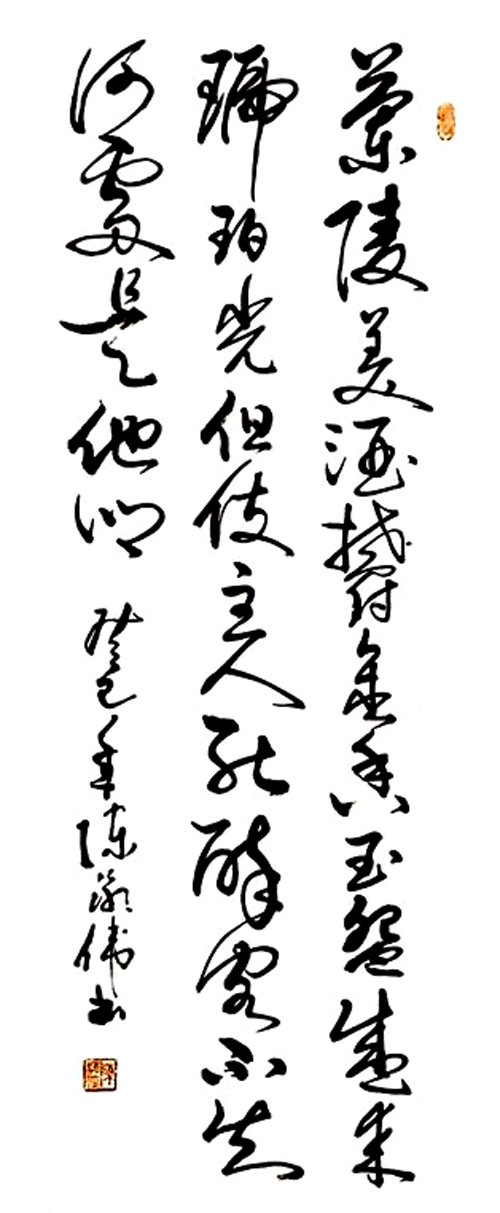 兰陵美酒郁金香玉盌盛来
琥珀光但使主人能醉客不知
何处是他乡
癸巳年陈伟书